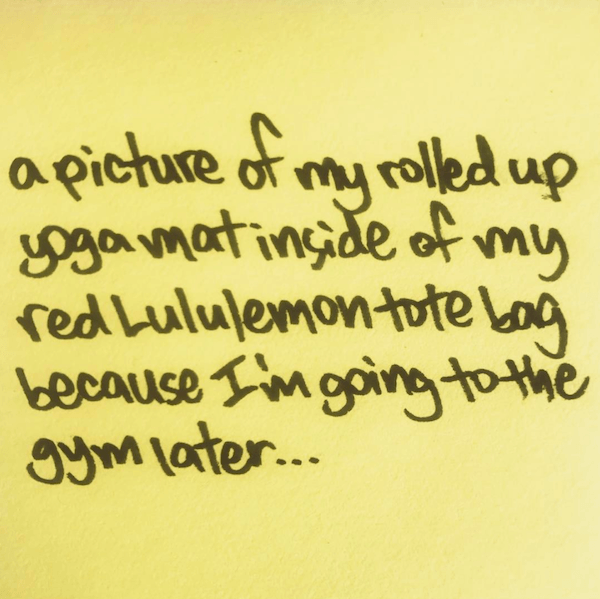 a picture of my rolled up
yoga mat inside of my
red Lululemon tote bag
because I'm going to the
gym later...